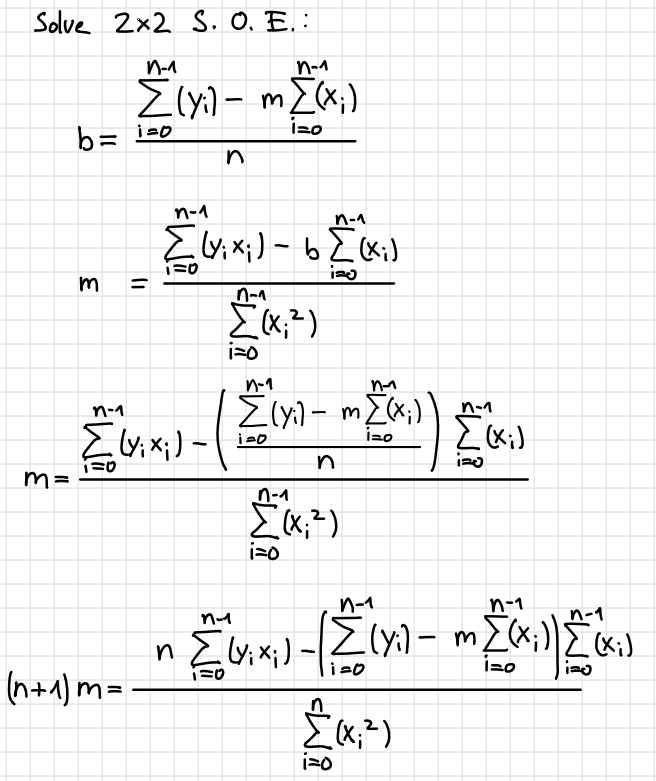 Solve 2×2 S. O. E.:
b = \frac{\sum_{i=0}^{n-1}(y_i) - m\sum_{i=0}^{n-1}(x_i)}{n}
m = \frac{\sum_{i=0}^{n-1}(y_i x_i) - b\sum_{i=0}^{n-1}(x_i)}{\sum_{i=0}^{n-1}(x_i^2)}
m = \frac{\sum_{i=0}^{n-1}(y_i x_i) - \left(\frac{\sum_{i=0}^{n-1}(y_i) - m\sum_{i=0}^{n-1}(x_i)}{n}\right)\sum_{i=0}^{n-1}(x_i)}{\sum_{i=0}^{n-1}(x_i^2)}
(n+1) m = \frac{n\sum_{i=0}^{n-1}(y_i x_i) - \left(\sum_{i=0}^{n-1}(y_i) - m\sum_{i=0}^{n-1}(x_i)\right)\sum_{i=0}^{n-1}(x_i)}{\sum_{i=0}^{n}(x_i^2)}